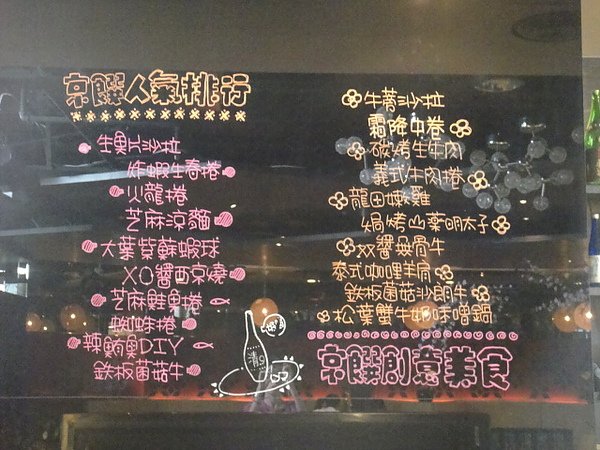 京饌人氣排行
生魚片沙拉
炸蝦生春捲
火龍捲
芝麻涼麵
大葉紫蘇蝦球
XO醬西京燒
芝麻鮭魚捲
蜘蛛捲
辣鮪魚DIY
鉄板菌菇牛
牛蒡沙拉
霜降中卷
碳烤生牛肉
義式牛肉捲
龍田嫩雞
焗烤山藥明太子
XX醬無骨牛
泰式咖哩羊肩
鉄板菌菇沙朗牛
松葉蟹牛奶味噌鍋
京饌創意美食